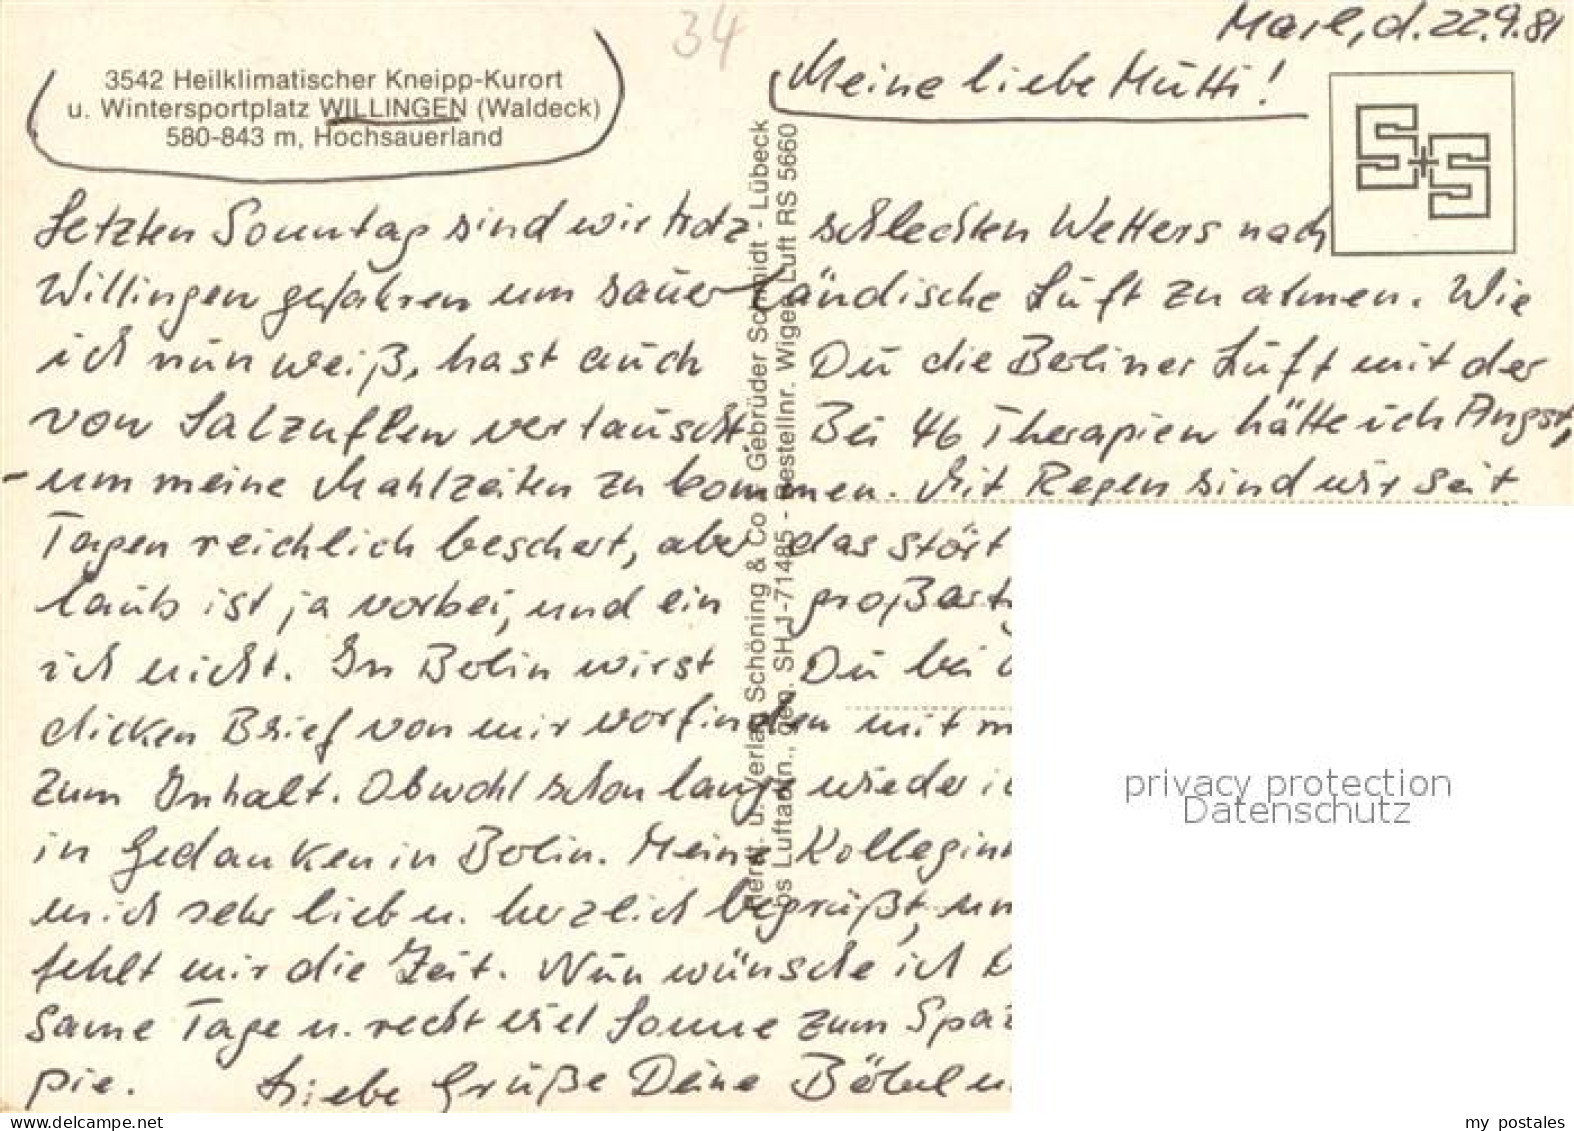 34
Marl, d. 22.9.81
3542 Heilklimatischer Kneipp-Kurort
u. Wintersportplatz WILLINGEN (Waldeck)
580-843 m, Hochsauerland
Meine liebe Mutti!
S+S
Letzten Sonntag sind wir trotz schlechten Wetters nach
Willingen gefahren um sauerländische Luft zu atmen. Wie
ich nun weiß, hast auch Du die Berliner Luft mit der
von Salzuflen vertauscht. Bei 46 Therapien hätte ich Angst,
- um meine Mahlzeiten zu kommen. Mit Regen sind wir seit
Tagen reichlich beschert, aber das stört
laub ist ja vorbei, und ein großart
ich nicht. In Berlin wirst Du bei
dicken Brief von mir vorfinden mit m
zum Inhalt. Obwohl schon lange wieder i
in Gedanken in Berlin. Meine Kollegin
mich sehr lieb u. herzlich begrüßt, un
fehlt mir die Zeit. Nun wünsche ich D
same Tage u. recht viel Sonne zum Spaz
pie. Liebe Grüße Deine Bärbel u.
Herst. u. Verlag Schöning & Co + Gebrüder Schmidt - Lübeck
Luftaufn., gen. SH 1-71485 - Bestellnr. Wigen Luft RS 5660
privacy protection
Datenschutz
www.delcampe.net
my postales